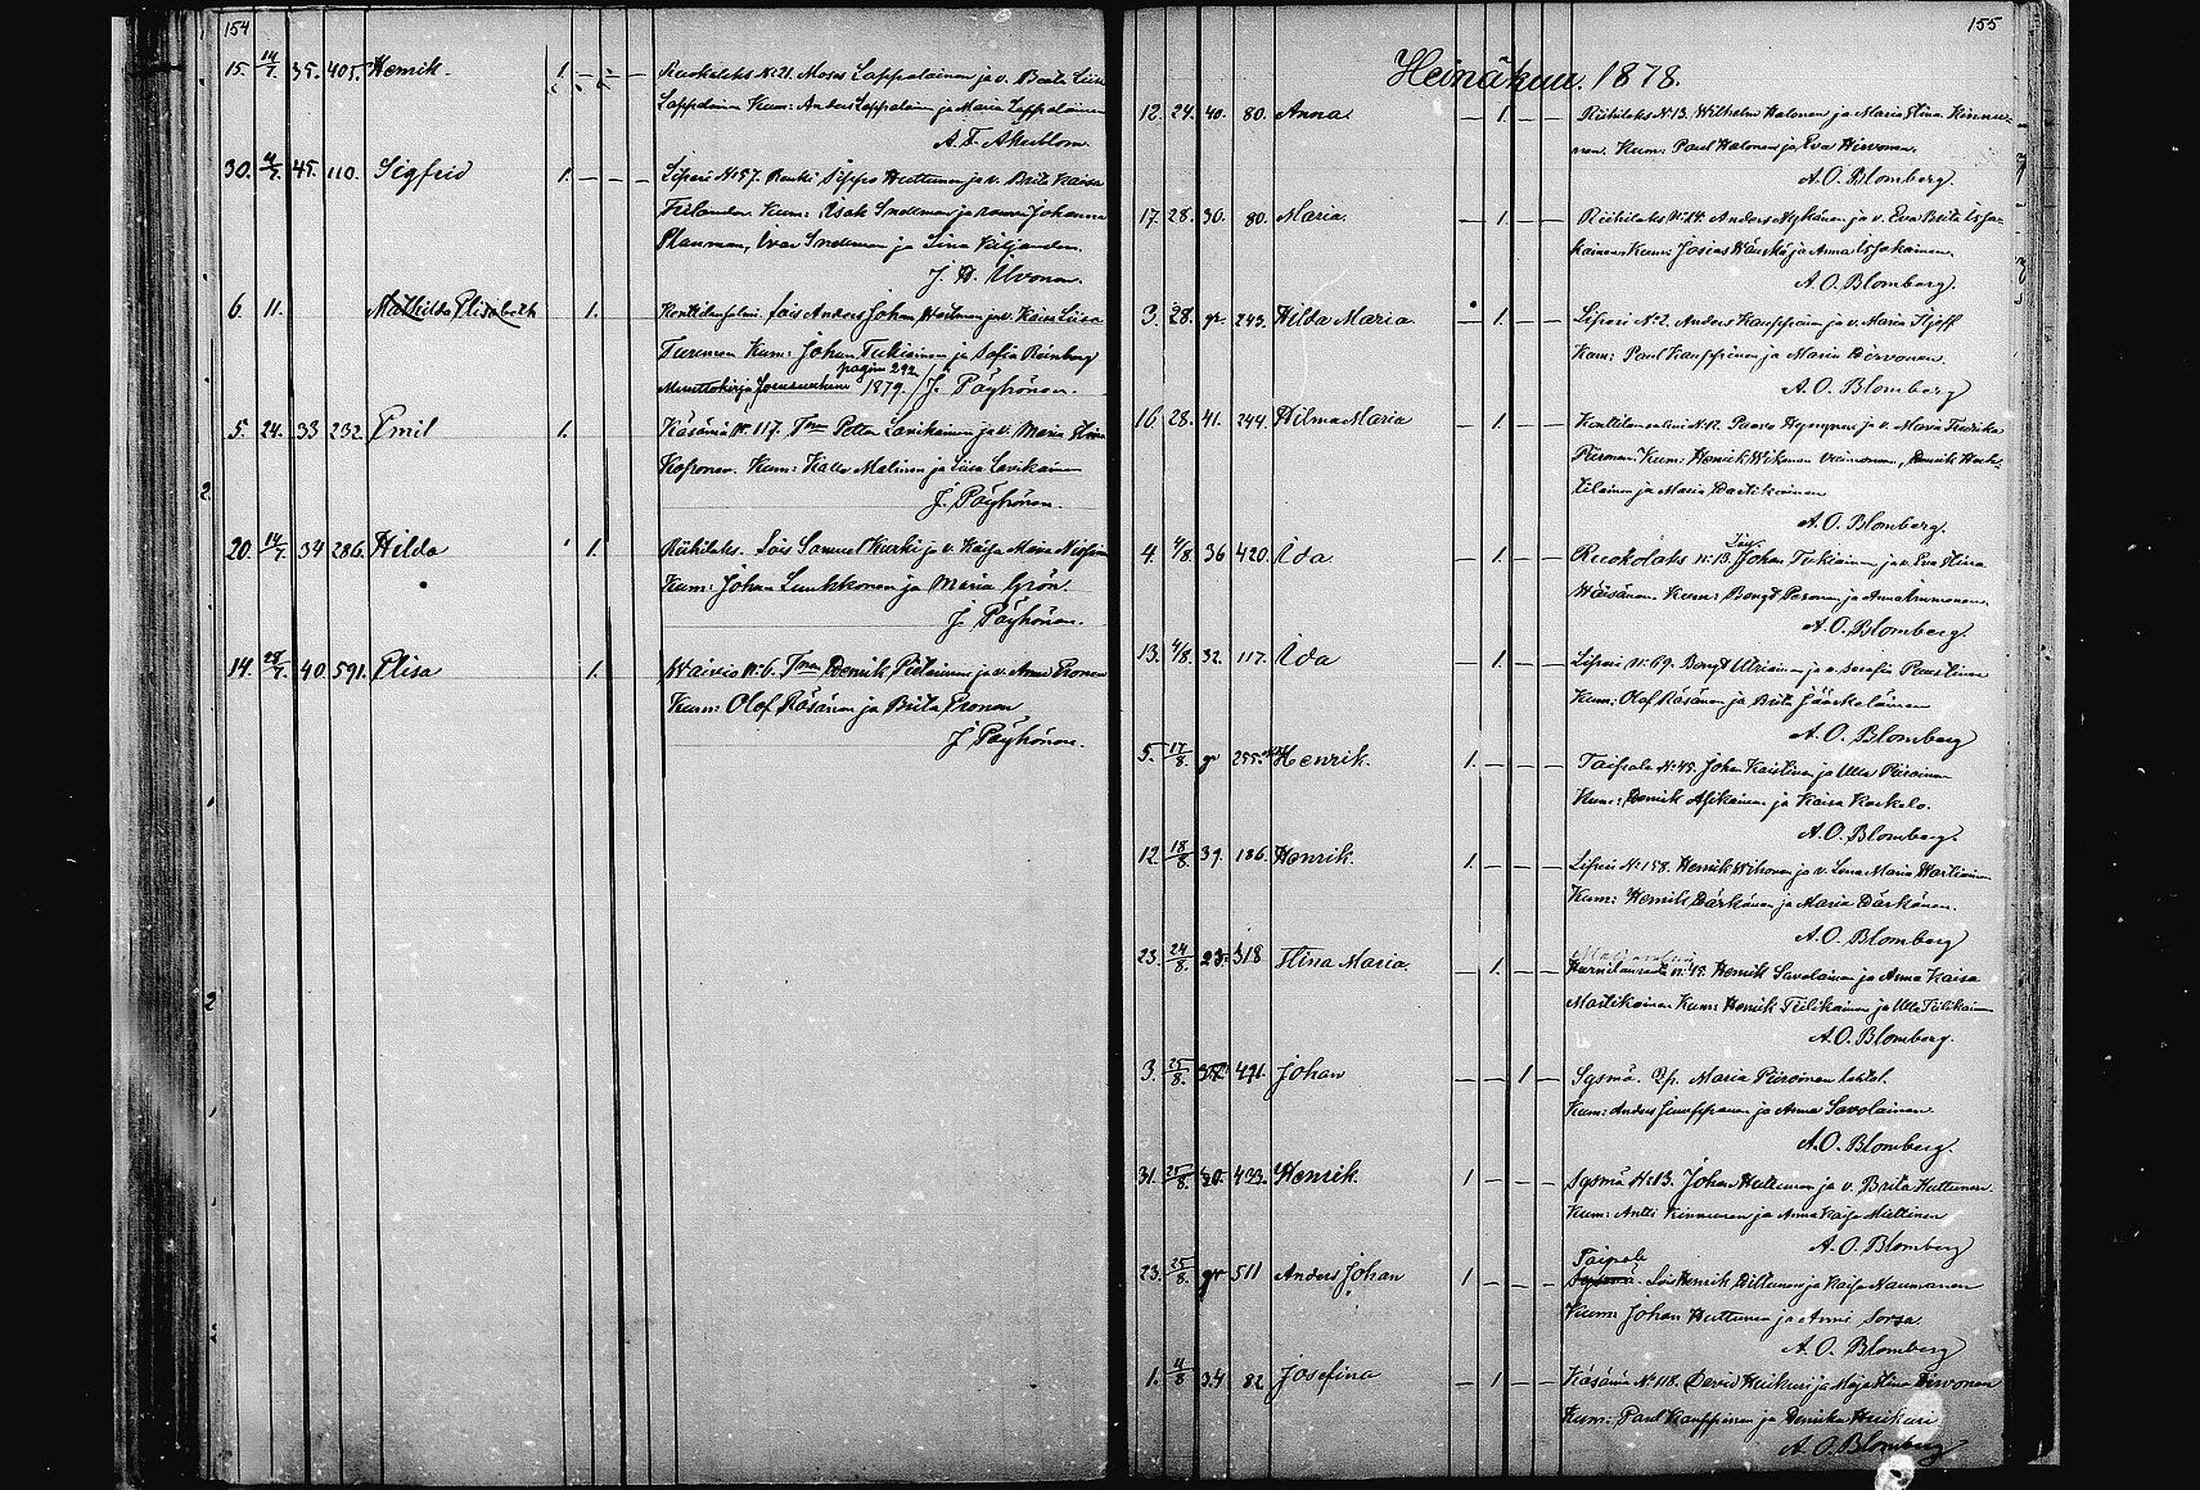 154
15. 14/7. 35. 405. Henrik. 1. – – – Ruokolaks No 21. Moses Lappalainen ja v. Beata Liisa
Lappalainen Kum: Anders Lappalainen ja Maria Lappalainen
A. F. Åkerblom.
30. 45. 110. Sigfrid 1. – – – Liperi No 57. Renki Sippo Huttunen ja v. Brita Kaisa
Kum: Isak Snellman ja rouva Johanna
Ivar Snellman ja Lina
J. H. Ilvonen.
6. 11. Mathilda Elisabeth 1. Anders Johan ja v. Kaisa Liisa
Turunen Kum: Johan Tukiainen ja Sofia Reinberg
pagina 292
Muuttokirja 1879. J. Pöyhönen.
5. 24. 33 232. Emil 1. Käsämä No 117. Petter Lavikainen ja v. Maria Stina
Koponen. Kum: Kalle Malinen ja Liisa Lavikainen
J. Pöyhönen.
20. 14/7. 34 286. Hilda 1. Riihilaks. Lois Samuel Kurki ja v. Kaisa Maria
Kum: Johan Lukkonen ja Maria Grön.
J. Pöyhönen.
14. 28/7. 40. 591. Elisa 1. Waivio No 6. Henrik Piitulainen ja v. Anna Eronen
Kum: Olof Räsänen ja Brita Eronen
J. Pöyhönen.
155
Heinäkuu. 1878.
12. 24. 40. 80. Anna. – 1. – – Riihilaks No 13. Wilhelm Halonen ja Maria Stina Kinnu-
nen. Kum: Paul Halonen ja Eva Hirvonen.
A. O. Blomberg.
17. 28. 30. 80. Maria. – 1. – – Riihilaks No 24. Anders Nykänen ja v. Eva Brita
Kum: Josias ja Anna
A. O. Blomberg.
3. 28. gr. 243. Hilda Maria. – 1. – – Liperi No 2. Anders Kauppinen ja v. Maria
Kum: Paul Kauppinen ja Maria Hirvonen.
A. O. Blomberg
16 28. 41. 244. Hilma Maria – 1. – – Kontilansalmi No 12. Paavo Hynynen ja v. Maria Fredrika
Piironen. Kum: Henrik Wikman Henrik
ja Maria
A. O. Blomberg.
4. 4/8. 36 420. Ida – 1. – – Ruokolaks No 13. Johan Tukiainen ja v. Eva Stina
Wäisänen. Kum: Bengt Peronen ja Anna Immonen.
A. O. Blomberg.
13. 4/8. 32. 117. Ida – 1. – – Liperi No 69. Bengt Utriainen ja v. Serafia Puustinen
Kum: Olof Räsänen ja Brita Jääskeläinen
A. O. Blomberg
5. 17/8. gr 255. Henrik. 1. – – – Taipale No 45. Johan Kaistinen ja Ulla Piiroinen
Kum: Henrik Asikainen ja Kaisa Koskelo.
A. O. Blomberg.
12. 18/8. 39. 186. Henrik. 1. – – – Liperi No 158. Henrik Wihonen ja v. Lena Maria Wartiainen
Kum: Henrik Härkönen ja Maria Härkönen.
A. O. Blomberg
23. 24/8. 23. 318 Stina Maria. – 1. – – No 48. Henrik Savolainen ja Anna Kaisa
Martikainen Kum: Henrik Tiilikainen ja Ulla Tiilikainen
A. O. Blomberg.
3. 25/8. 37. 491. Johan – – 1 – Sysmä. Maria Piiroinen
Kum: Anders ja Anna Savolainen.
A. O. Blomberg.
31. 25/8. 20. 433. Henrik. 1 – – – Sysmä No 13. Johan Huttunen ja v. Brita Huttunen.
Kum: Antti Kinnunen ja Anna Kaisa Miettinen
A. O. Blomberg
Taipale
23. 25/8. gr 511 Anders Johan 1 – – – Sysmä. Lois Henrik Hiltunen ja Kaisa Naumanen
Kum: Johan Huttunen ja Anni Sorsa.
A. O. Blomberg
1. 4/8 34 82 Josefina – 1 – – Käsämä No 118. David Heikuri ja Maja Stina Hirvonen
Kum: Paul Kauppinen ja Henrika Heikuri
A. O. Blomberg